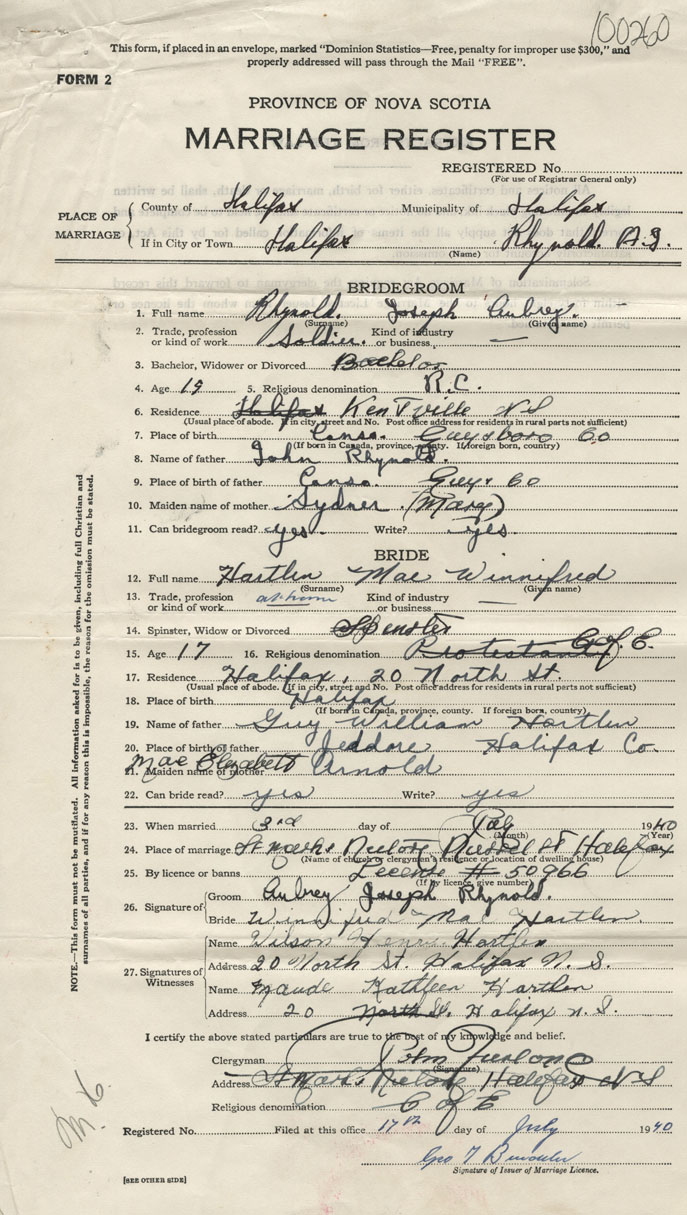 100260
This form, if placed in an envelope, marked "Dominion Statistics—Free, penalty for improper use $300," and
properly addressed will pass through the Mail "FREE".
FORM 2
PROVINCE OF NOVA SCOTIA
MARRIAGE REGISTER
REGISTERED No.
(For use of Registrar General only)
PLACE OF MARRIAGE
County of Halifax Municipality of Halifax
If in City or Town Halifax Rhynold. A.J.
(Name)
BRIDEGROOM
1. Full name Rhynold. Joseph Aubrey.
(Surname) (Given name)
2. Trade, profession or kind of work Soldier. Kind of industry or business —
3. Bachelor, Widower or Divorced Bachelor
4. Age 19 5. Religious denomination R.C.
6. Residence Halifax Kentville N S
(Usual place of abode. If in city, street and No. Post office address for residents in rural parts not sufficient)
7. Place of birth Canso. Guysboro Co
(If born in Canada, province, county. If foreign born, country)
8. Name of father John Rhynold.
9. Place of birth of father Canso Guys Co
10. Maiden name of mother Sydner (Mary)
11. Can bridegroom read? yes. Write? Yes
BRIDE
12. Full name Hartlen Mae Winnifred
(Surname) (Given name)
13. Trade, profession or kind of work at home Kind of industry or business —
14. Spinster, Widow or Divorced Spinster
15. Age 17 16. Religious denomination Protestant C of E.
17. Residence Halifax, 20 North St.
(Usual place of abode. If in city, street and No. Post office address for residents in rural parts not sufficient)
18. Place of birth Halifax
(If born in Canada, province, county. If foreign born, country)
19. Name of father Guy William Hartlen
20. Place of birth of father Jeddore Halifax Co.
21. Maiden name of mother Mae Elizabeth Arnold
22. Can bride read? yes Write? yes
23. When married 3rd day of July 1940
(Month) (Year)
24. Place of marriage St Marks Russel St Halifax
(Name of church or clergymen's residence or location of dwelling house)
25. By licence or banns Lecense # 50966
(If by licence, give number)
26. Signature of
Groom Aubrey Joseph Rhynold.
Bride Winnifred Mae Hartlen.
27. Signatures of Witnesses
Name Wilson Henry Hartlen
Address 20 North St. Halifax N. S.
Name Maude Kathleen Hartlen
Address 20 North St. Halifax N. S.
I certify the above stated particulars are true to the best of my knowledge and belief.
Clergyman
(Signature)
Address St Marks Halifax N S
Religious denomination C of E
Registered No. Filed at this office 17th day of July 1940
Geo T
Signature of Issuer of Marriage Licence.
[SEE OTHER SIDE]
NOTE.—This form must not be mutilated. All information asked for is to be given, including full Christian and
surnames of all parties, and if for any reason this is impossible, the reason for the omission must be stated.